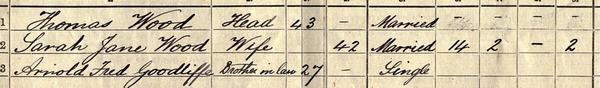 1 Thomas Wood Head 43 – Married – – – –
2 Sarah Jane Wood Wife 42 Married 14 2 – 2
3 Arnold Fred Goodliffe Brother in law 27 – Single